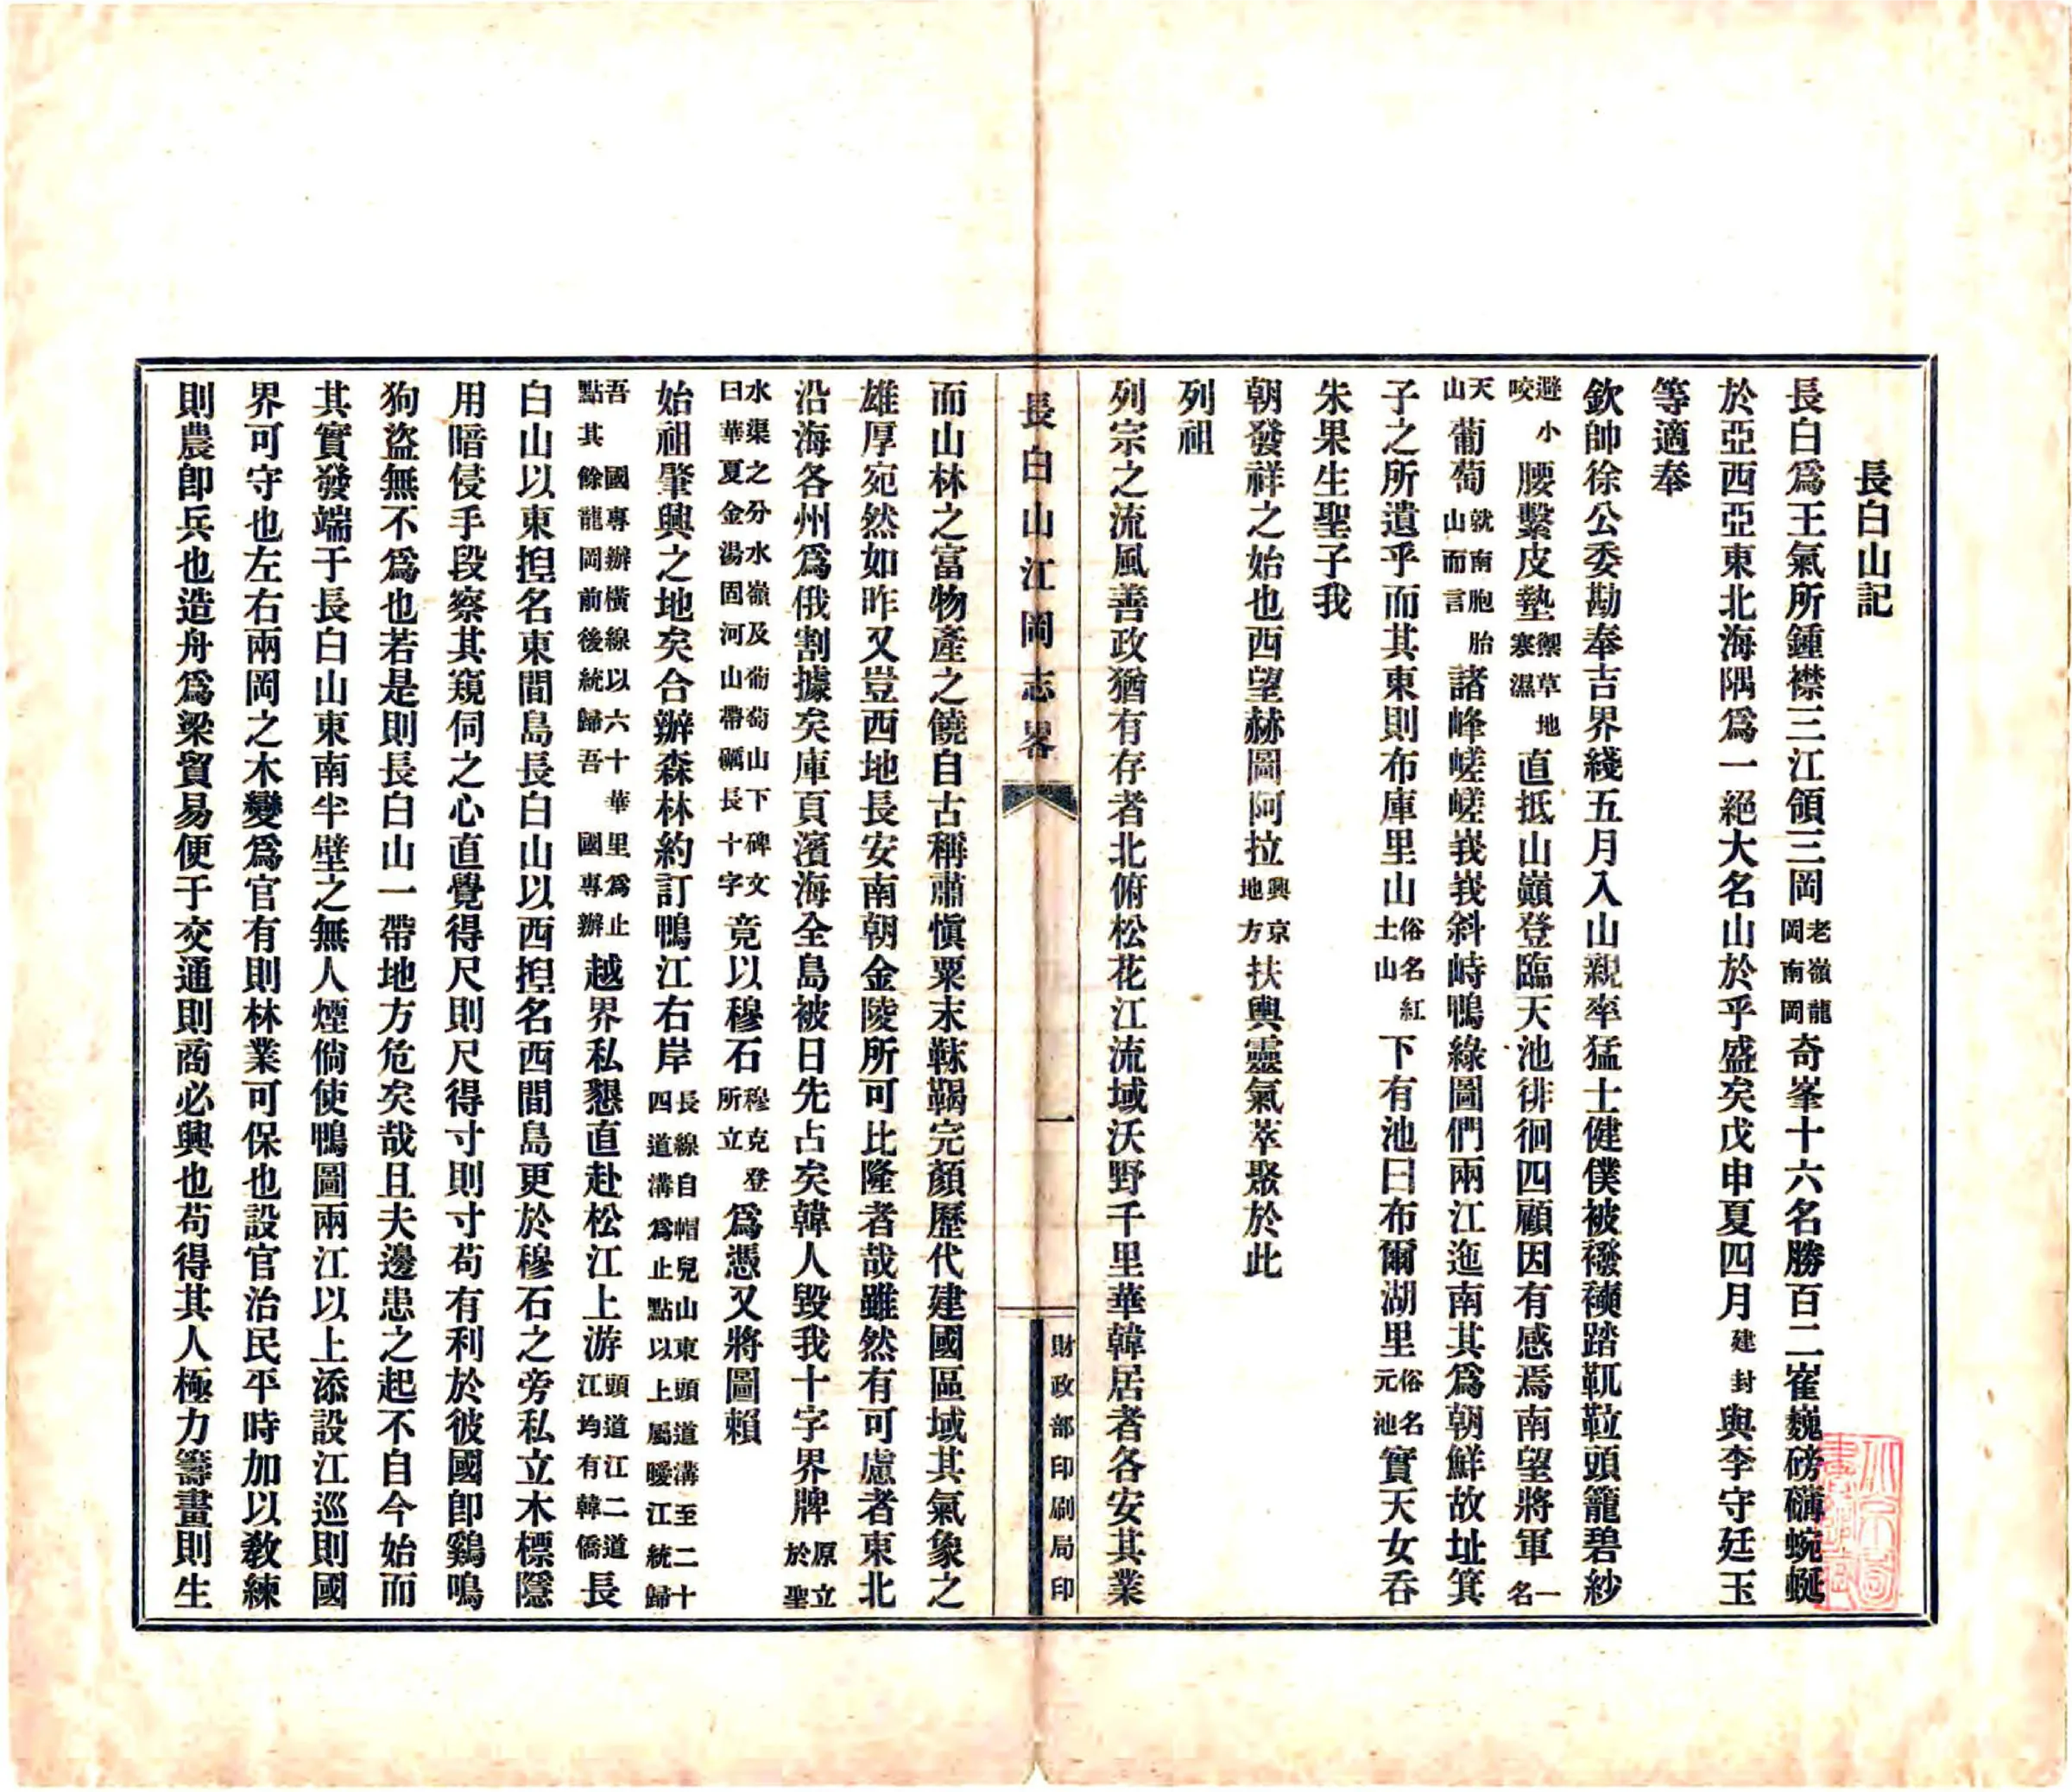 長白山記
長白爲王氣所鍾襟三江領三岡老嶺龍岡南岡奇峯十六名勝百二崔巍磅礴蜿蜒
於亞西亞東北海隅爲一絕大名山於乎盛矣戊申夏四月建封與李守廷玉
等適奉
欽帥徐公委勘奉吉界綫五月入山親率猛士健僕被襏襫踏靰鞡頭籠碧紗
避小咬腰繫皮墊禦草地寒濕直抵山巔登臨天池徘徊四顧因有感焉南望將軍一名
天山葡萄就南胞胎山而言諸峰嵯嵯峩峩斜峙鴨綠圖們兩江迤南其爲朝鮮故址箕
子之所遺乎而其東則布庫里山俗名紅土山下有池曰布爾湖里俗名元池實天女吞
朱果生聖子我
朝發祥之始也西望赫圖阿拉興京地方扶輿靈氣萃聚於此
列祖
列宗之流風善政猶有存者北俯松花江流域沃野千里華韓居者各安其業
長白山江岡志畧 一 財政部印刷局印
而山林之富物產之饒自古稱肅愼粟末靺鞨完顏歷代建國區域其氣象之
雄厚宛然如昨又豈西地長安南朝金陵所可比隆者哉雖然有可慮者東北
沿海各州爲俄割據矣庫頁濱海全島被日先占矣韓人毀我十字界牌原立於聖
水渠之分水嶺及葡萄山下碑文曰華夏金湯固河山帶礪長十字竟以穆石穆克登所立爲憑又將圖賴
始祖肇興之地矣合辦森林約訂鴨江右岸長線自帽兒山東頭道溝至二十四道溝爲止點以上屬曖江統歸
吾國專辦橫線以六十華里爲止點其餘龍岡前後統歸吾國專辦越界私懇直赴松江上游頭道江二道江均有韓僑長
白山以東揑名東間島長白山以西揑名西間島更於穆石之旁私立木標隱
用暗侵手段察其窺伺之心直覺得尺則尺得寸則寸苟有利於彼國卽鷄鳴
狗盜無不爲也若是則長白山一帶地方危矣哉且夫邊患之起不自今始而
其實發端于長白山東南半壁之無人煙倘使鴨圖兩江以上添設江巡則國
界可守也左右兩岡之木變爲官有則林業可保也設官治民平時加以敎練
則農卽兵也造舟爲梁貿易便于交通則商必興也苟得其人極力籌畫則生